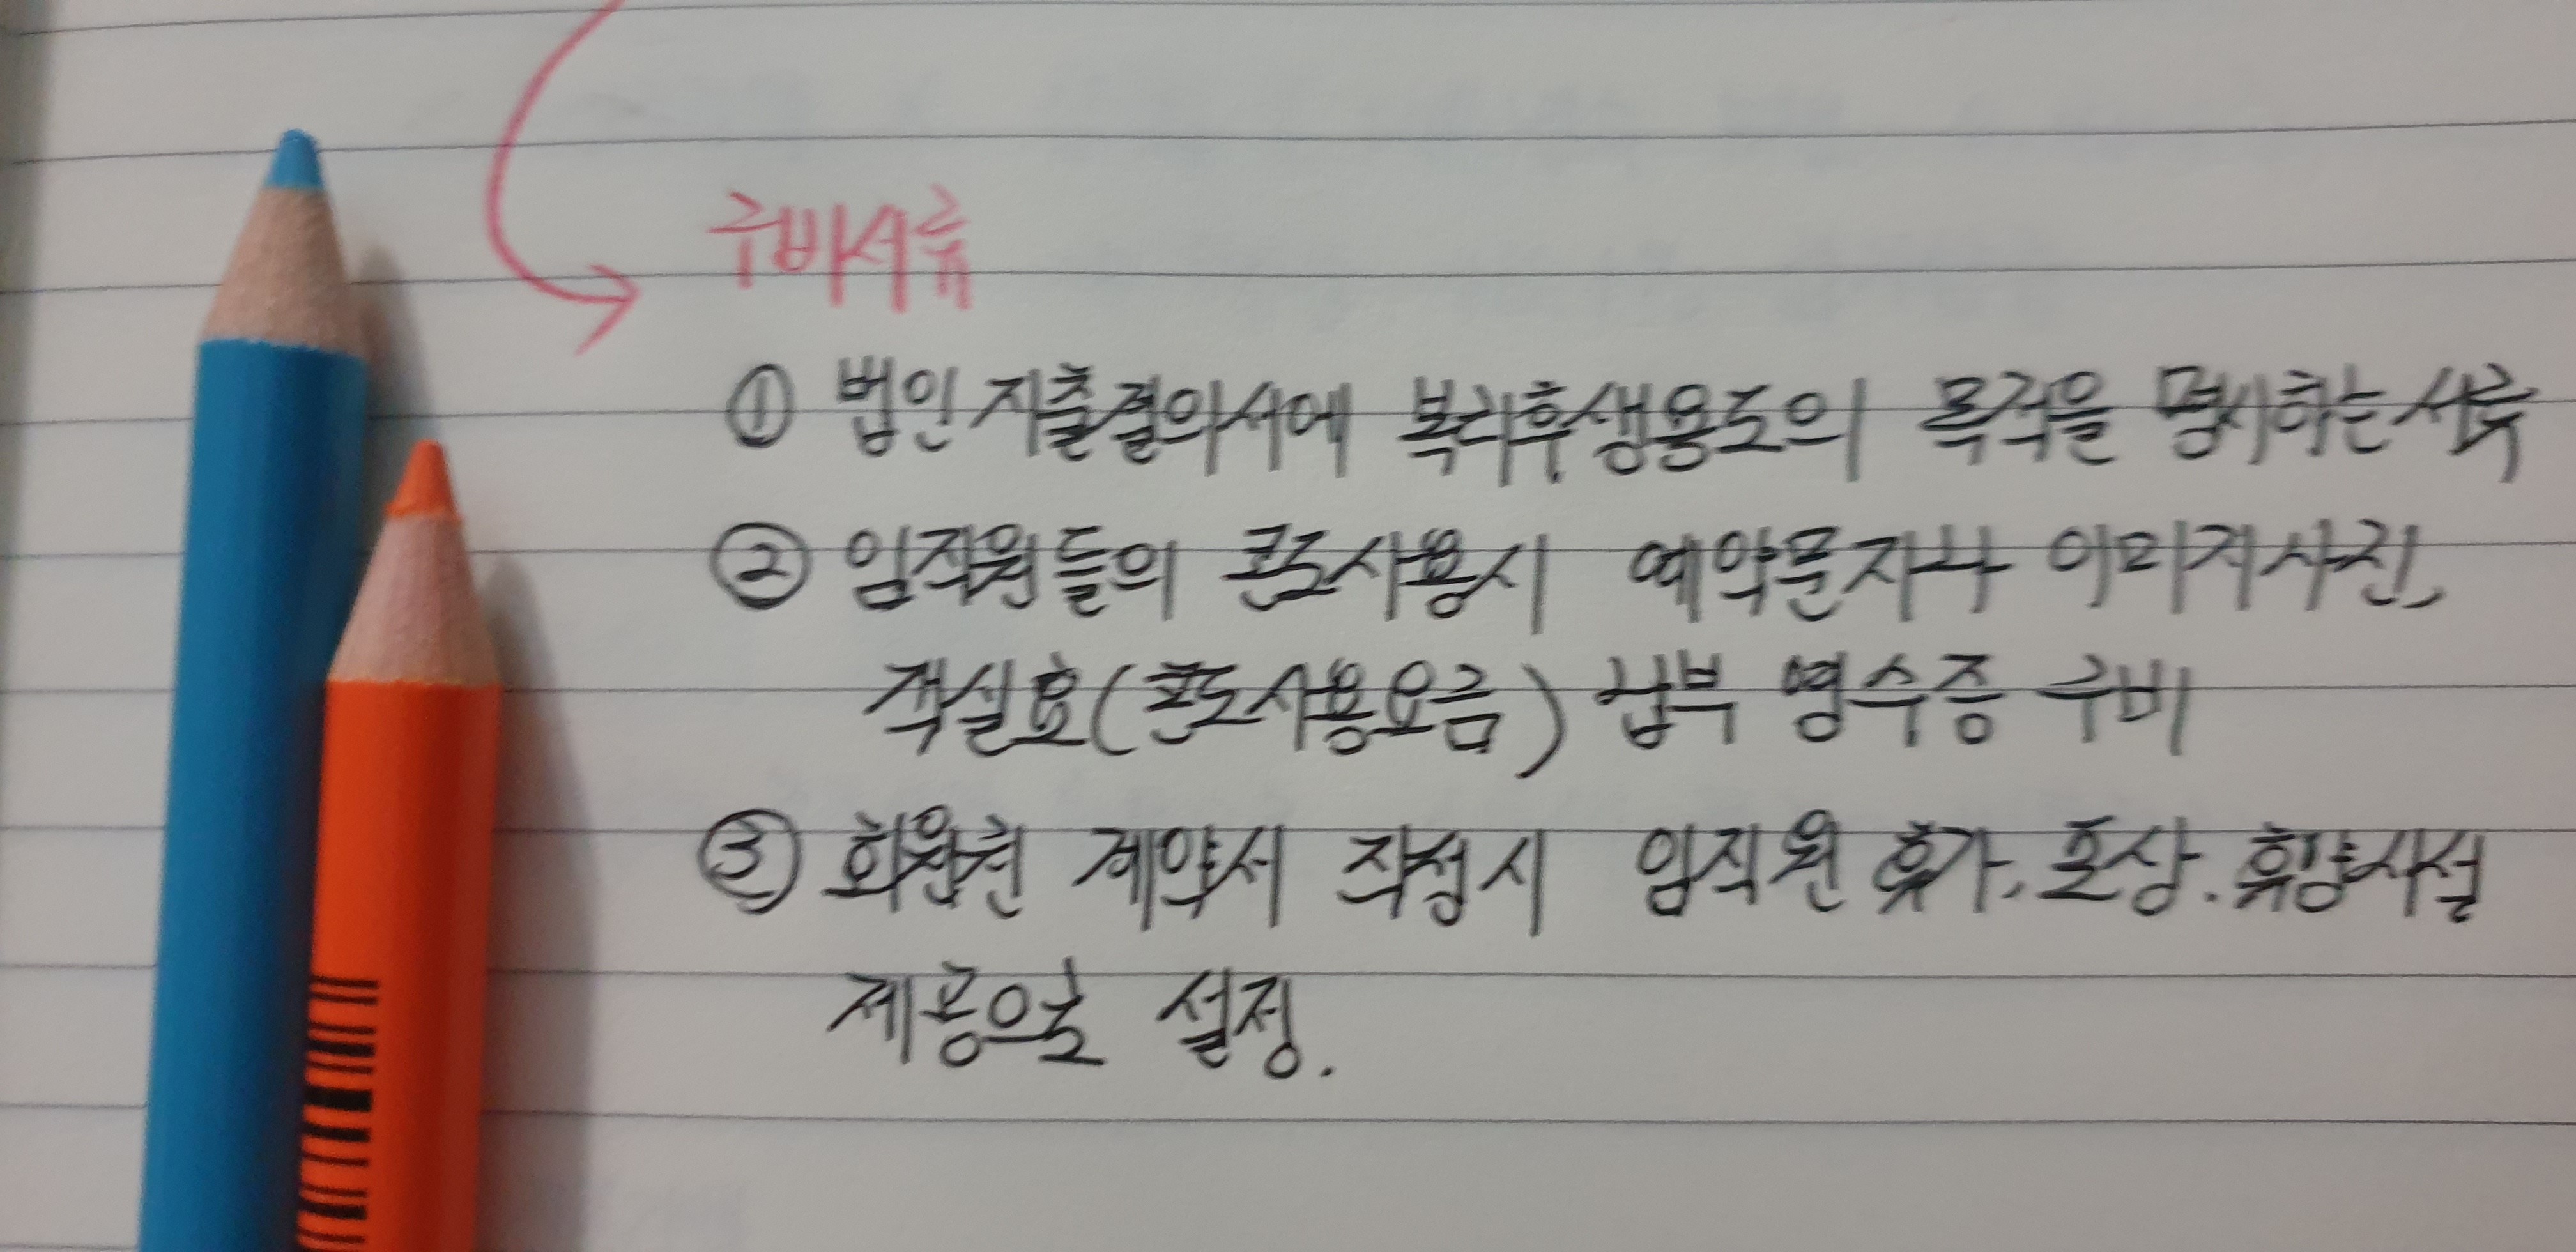 구비서류
① 법인 지출결의서에 복리후생용도의 목적을 명시하는 서류
② 임직원들의 콘도사용시 예약문자나 이미지사진,
객실료(콘도사용요금) 납부 영수증 구비
③ 회원권 계약서 작성시 임직원 휴가, 포상. 휴양시설
제공으로 설정.